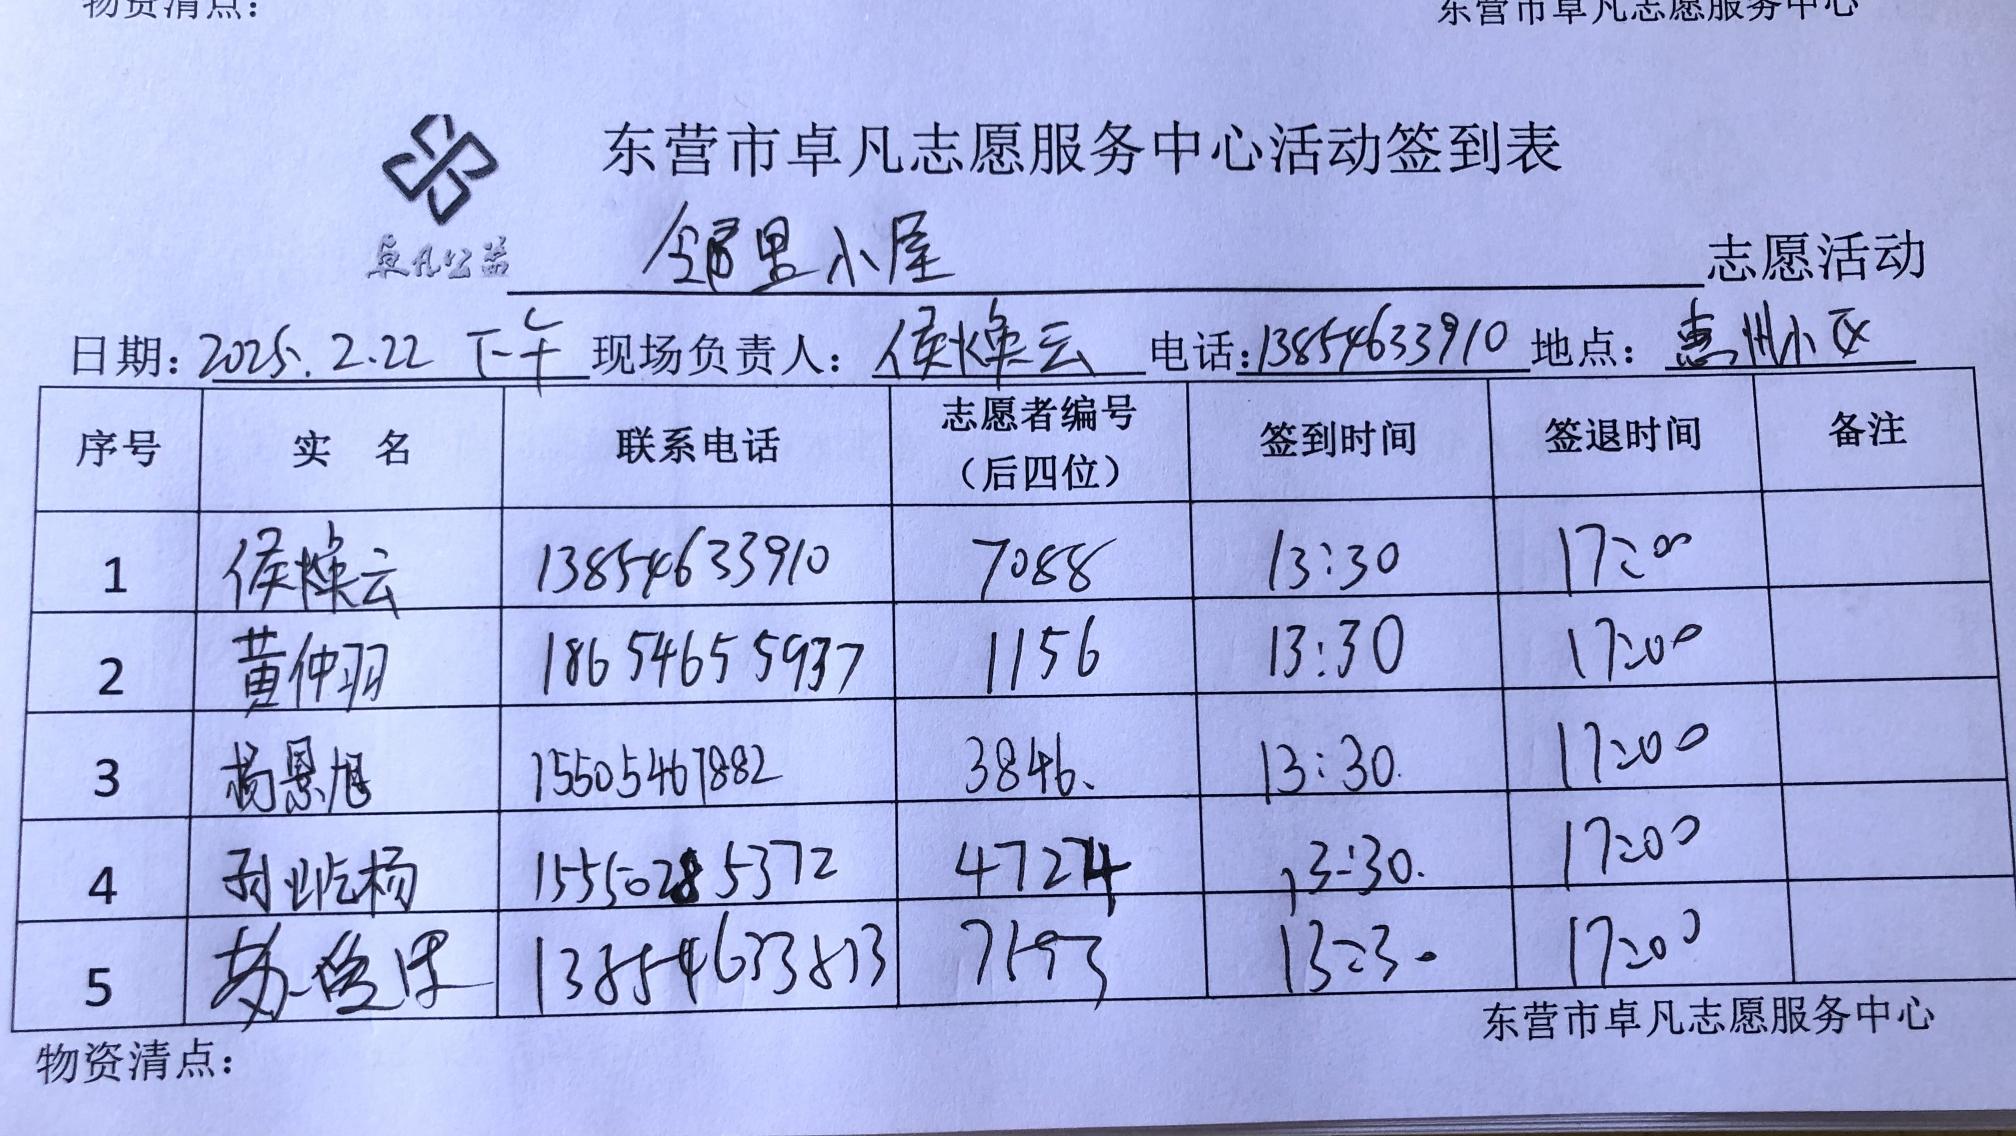 物资清点：
东营市卓凡志愿服务中心
东营市卓凡志愿服务中心活动签到表
卓凡公益
邻里小屋 志愿活动
日期：2025.2.22 下午 现场负责人：侯焕云 电话：13854633910 地点：惠州小区
序号 实 名 联系电话 志愿者编号（后四位） 签到时间 签退时间 备注
1 侯焕云 13854633910 7088 13:30 17:00
2 黄仲羽 18654655937 1156 13:30 17:00
3 杨景旭 15505467882 3846. 13:30. 17:00
4 孙屹杨 15550285372 4724 13:30. 17:00
5 13854633813 7193 13:30 17:00
东营市卓凡志愿服务中心
物资清点：